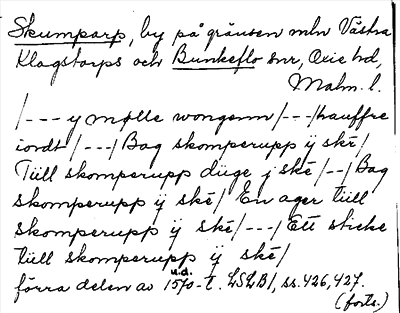 Skumparp, by på gränsen mln Västra
Klagstorps och Bunkeflo snr, Oxie hd,
Malm. l.
/--- y mølle wongenn /---/ hauffre
iordt /---/ Bag skomperupp ÿ ské/
Tüll skomperupp düge j ské /--/ Bag
skomperupp ÿ ské/ En ager tüll
skomperupp ÿ ské/ ---/ Ett sticke
tüll skomperupp ÿ ské/
u.d.
förra delen av 1570-t. LSLB1, ss. 426, 427.
(forts.)